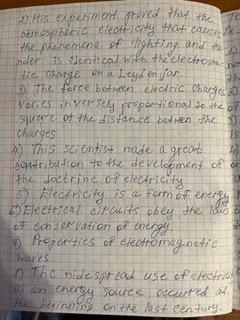 2) His experiment proved that the
atmospheric electricity that causes
the phenomene of lighting and the
nder is identical with the electrosta-
tic charge on a Leyden jar.
3) The force between electric charges
varies inversely proportional to the
square of the distance between the
charges
4) This scientist made a great
contribution to the development of
the doctrine of electricity
5) Electricity is a form of energy
6) Electrical circuits obey the laws
of conservation of energy.
7) Properties of electromagnetic
waves.
The widespread use of electricity
as an energy source occurred at
the beginning on the last century.